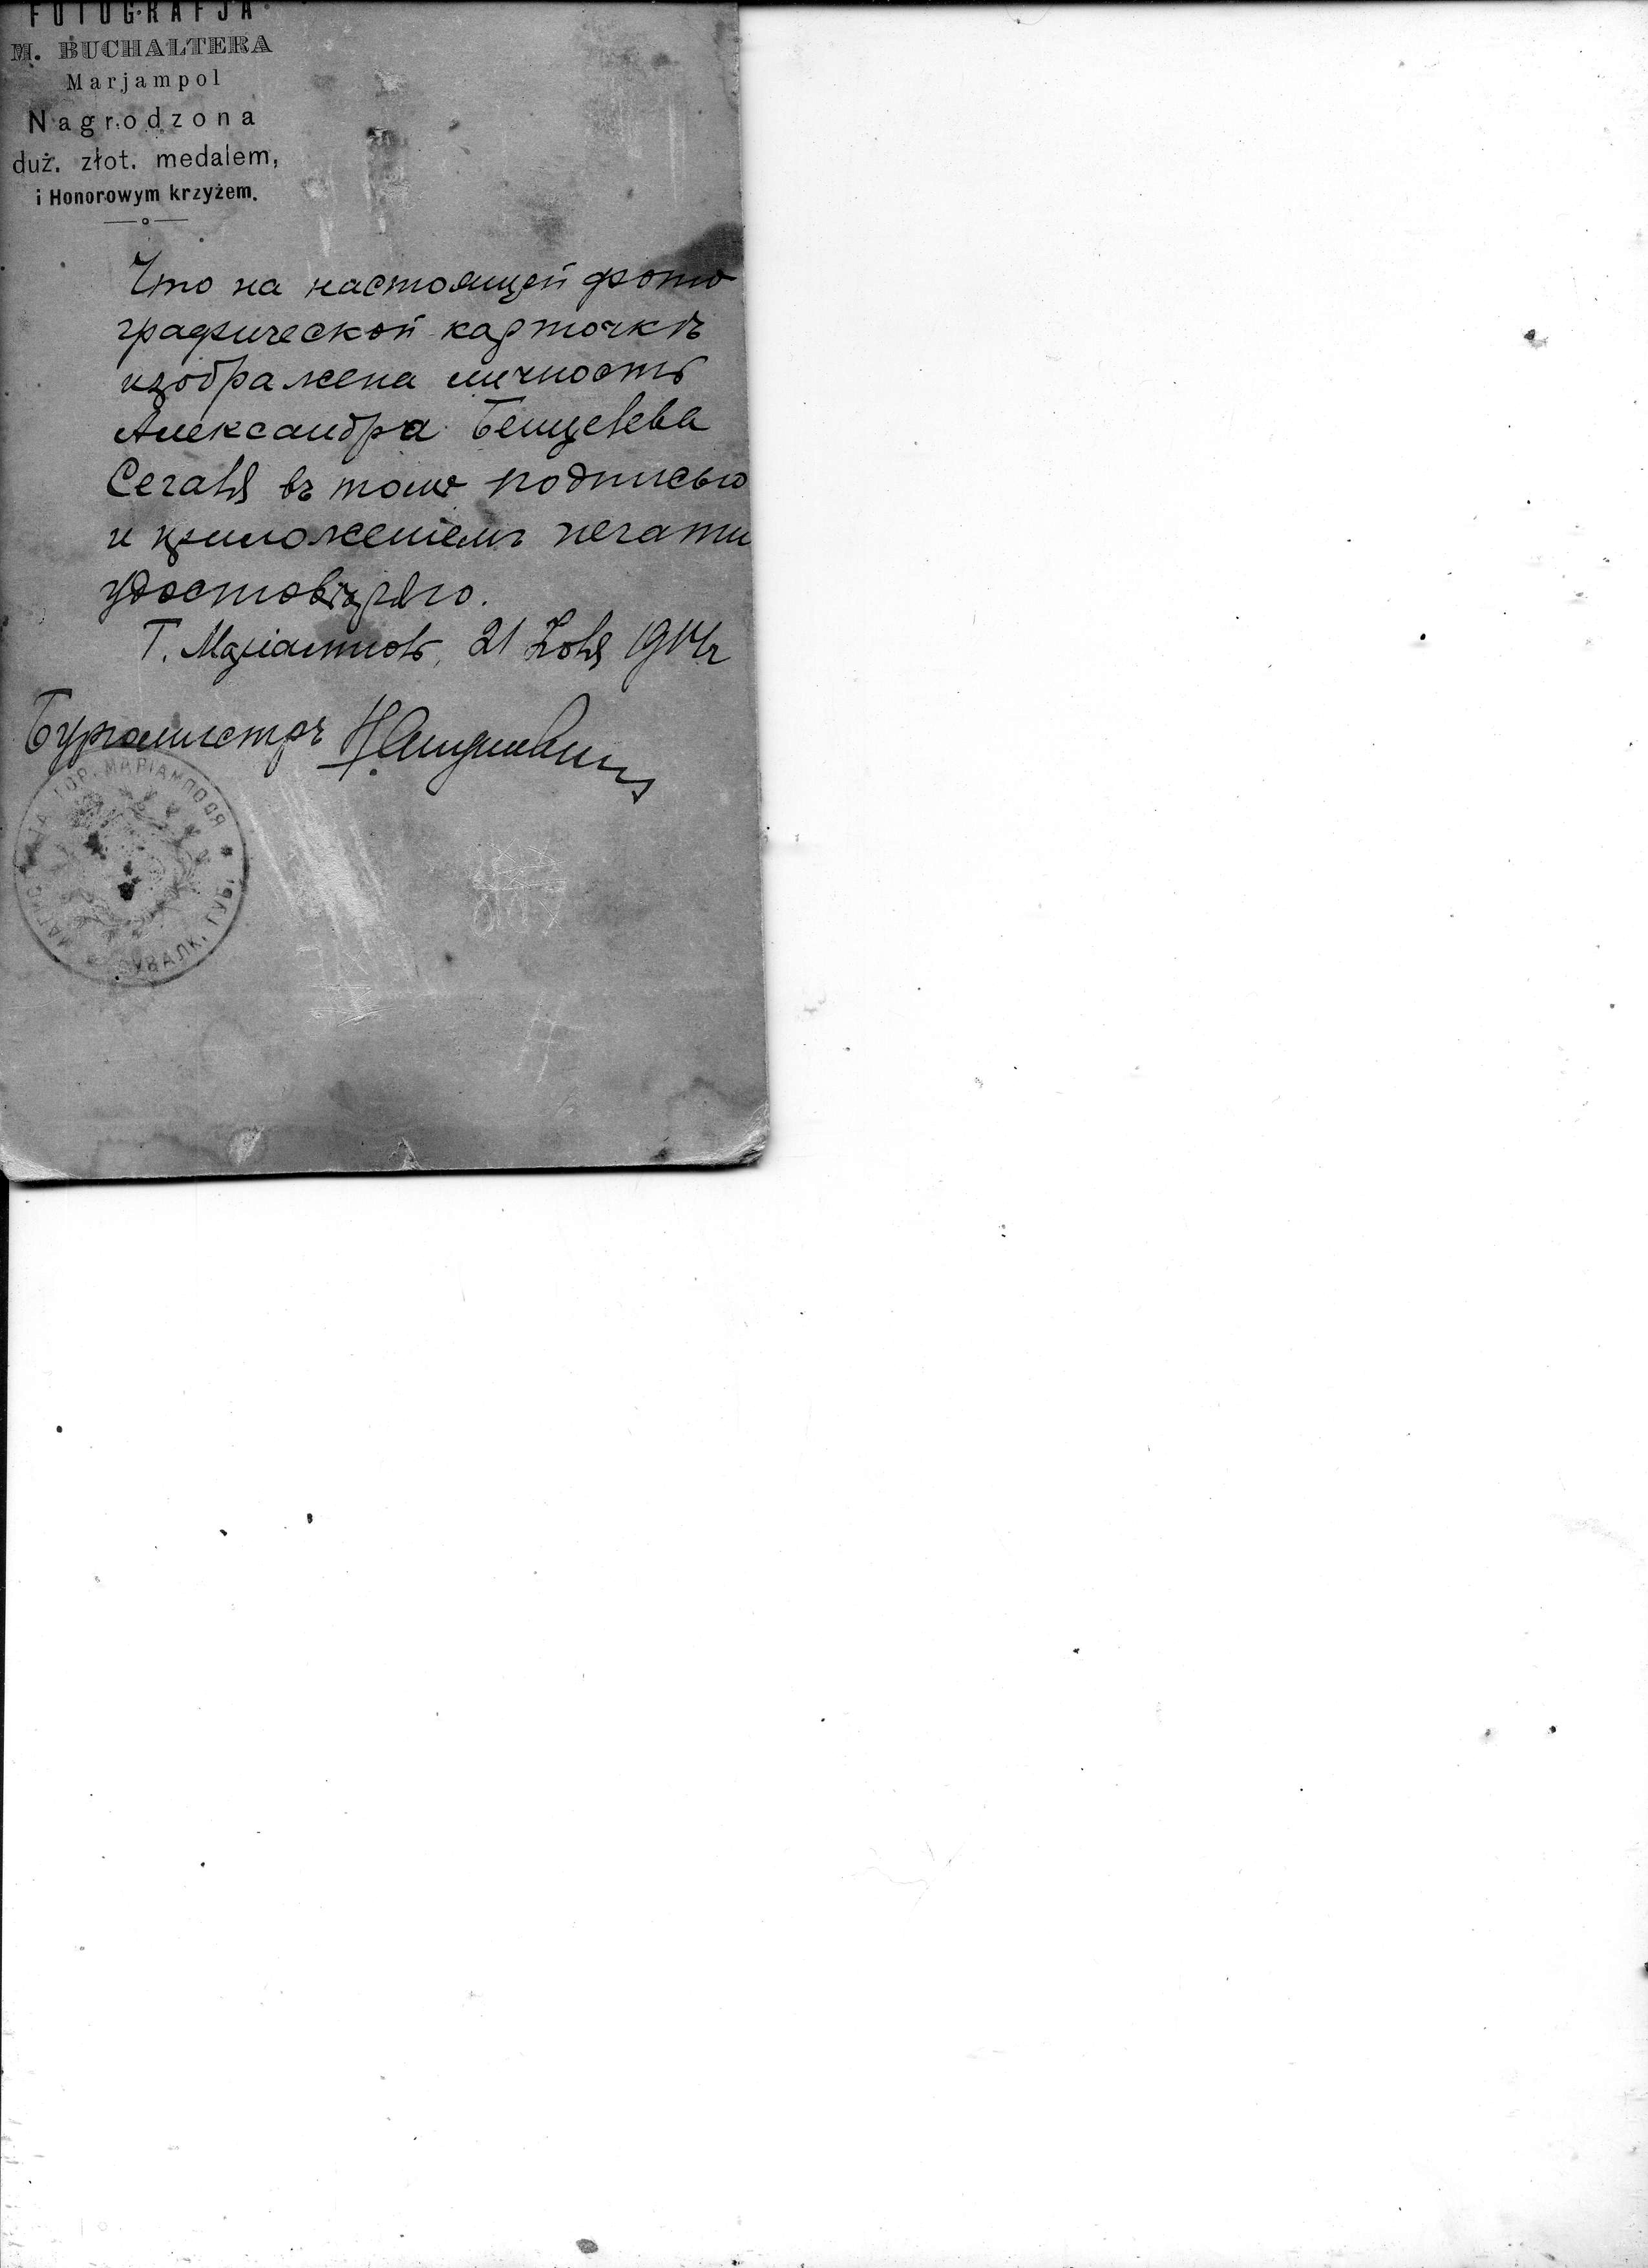 FOTOGRAFJA
M. BUCHALTERA
Marjampol
Nagrodzona
duż. złot. medalem,
i Honorowym krzyżem.
Что на настоящей фото
графической карточкѣ
изображена личность
Александра
въ томъ подписью
и приложеніемъ печати
удостовѣряю.
Г. Маріамполь, 21 1914 г
Бургомистръ
МАГИСТРАТА ГОР. МАРІАМПОЛЯ * СУВАЛК. ГУБ.